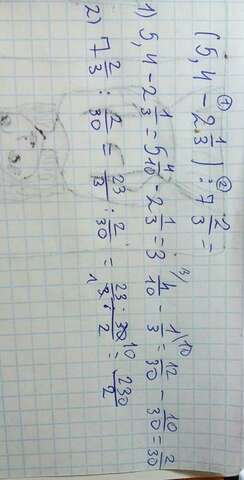 (5,4 - 2 1/3) : 7 2/3 =
① ②
1) 5,4 - 2 1/3 = 5 4/10 - 2 1/3 = 3 4/10 - 1/3 = 12/30 - 10/30 = 2/30
2) 7 2/3 : 2/30 = 23/3 : 2/30 = 23 · 30/3 · 2 = 230/2